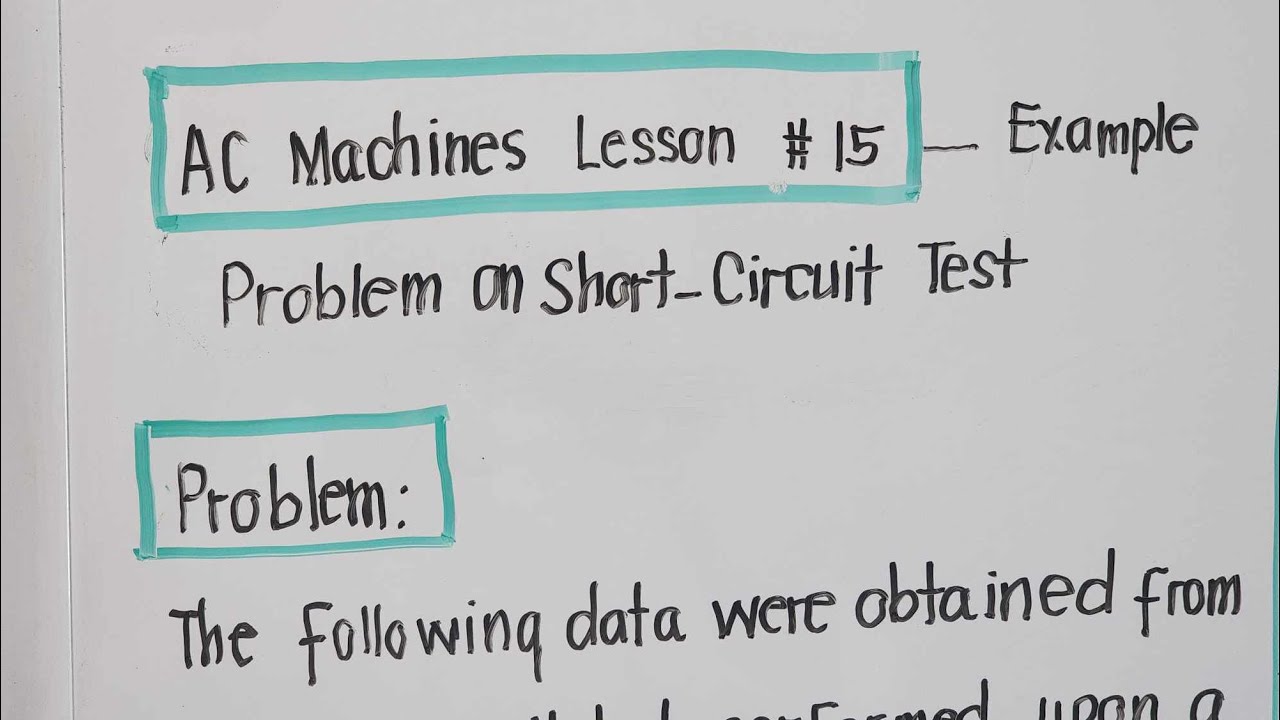 AC Machines Lesson #15 — Example
Problem on Short-Circuit Test
Problem:
The following data were obtained from
performed upon a